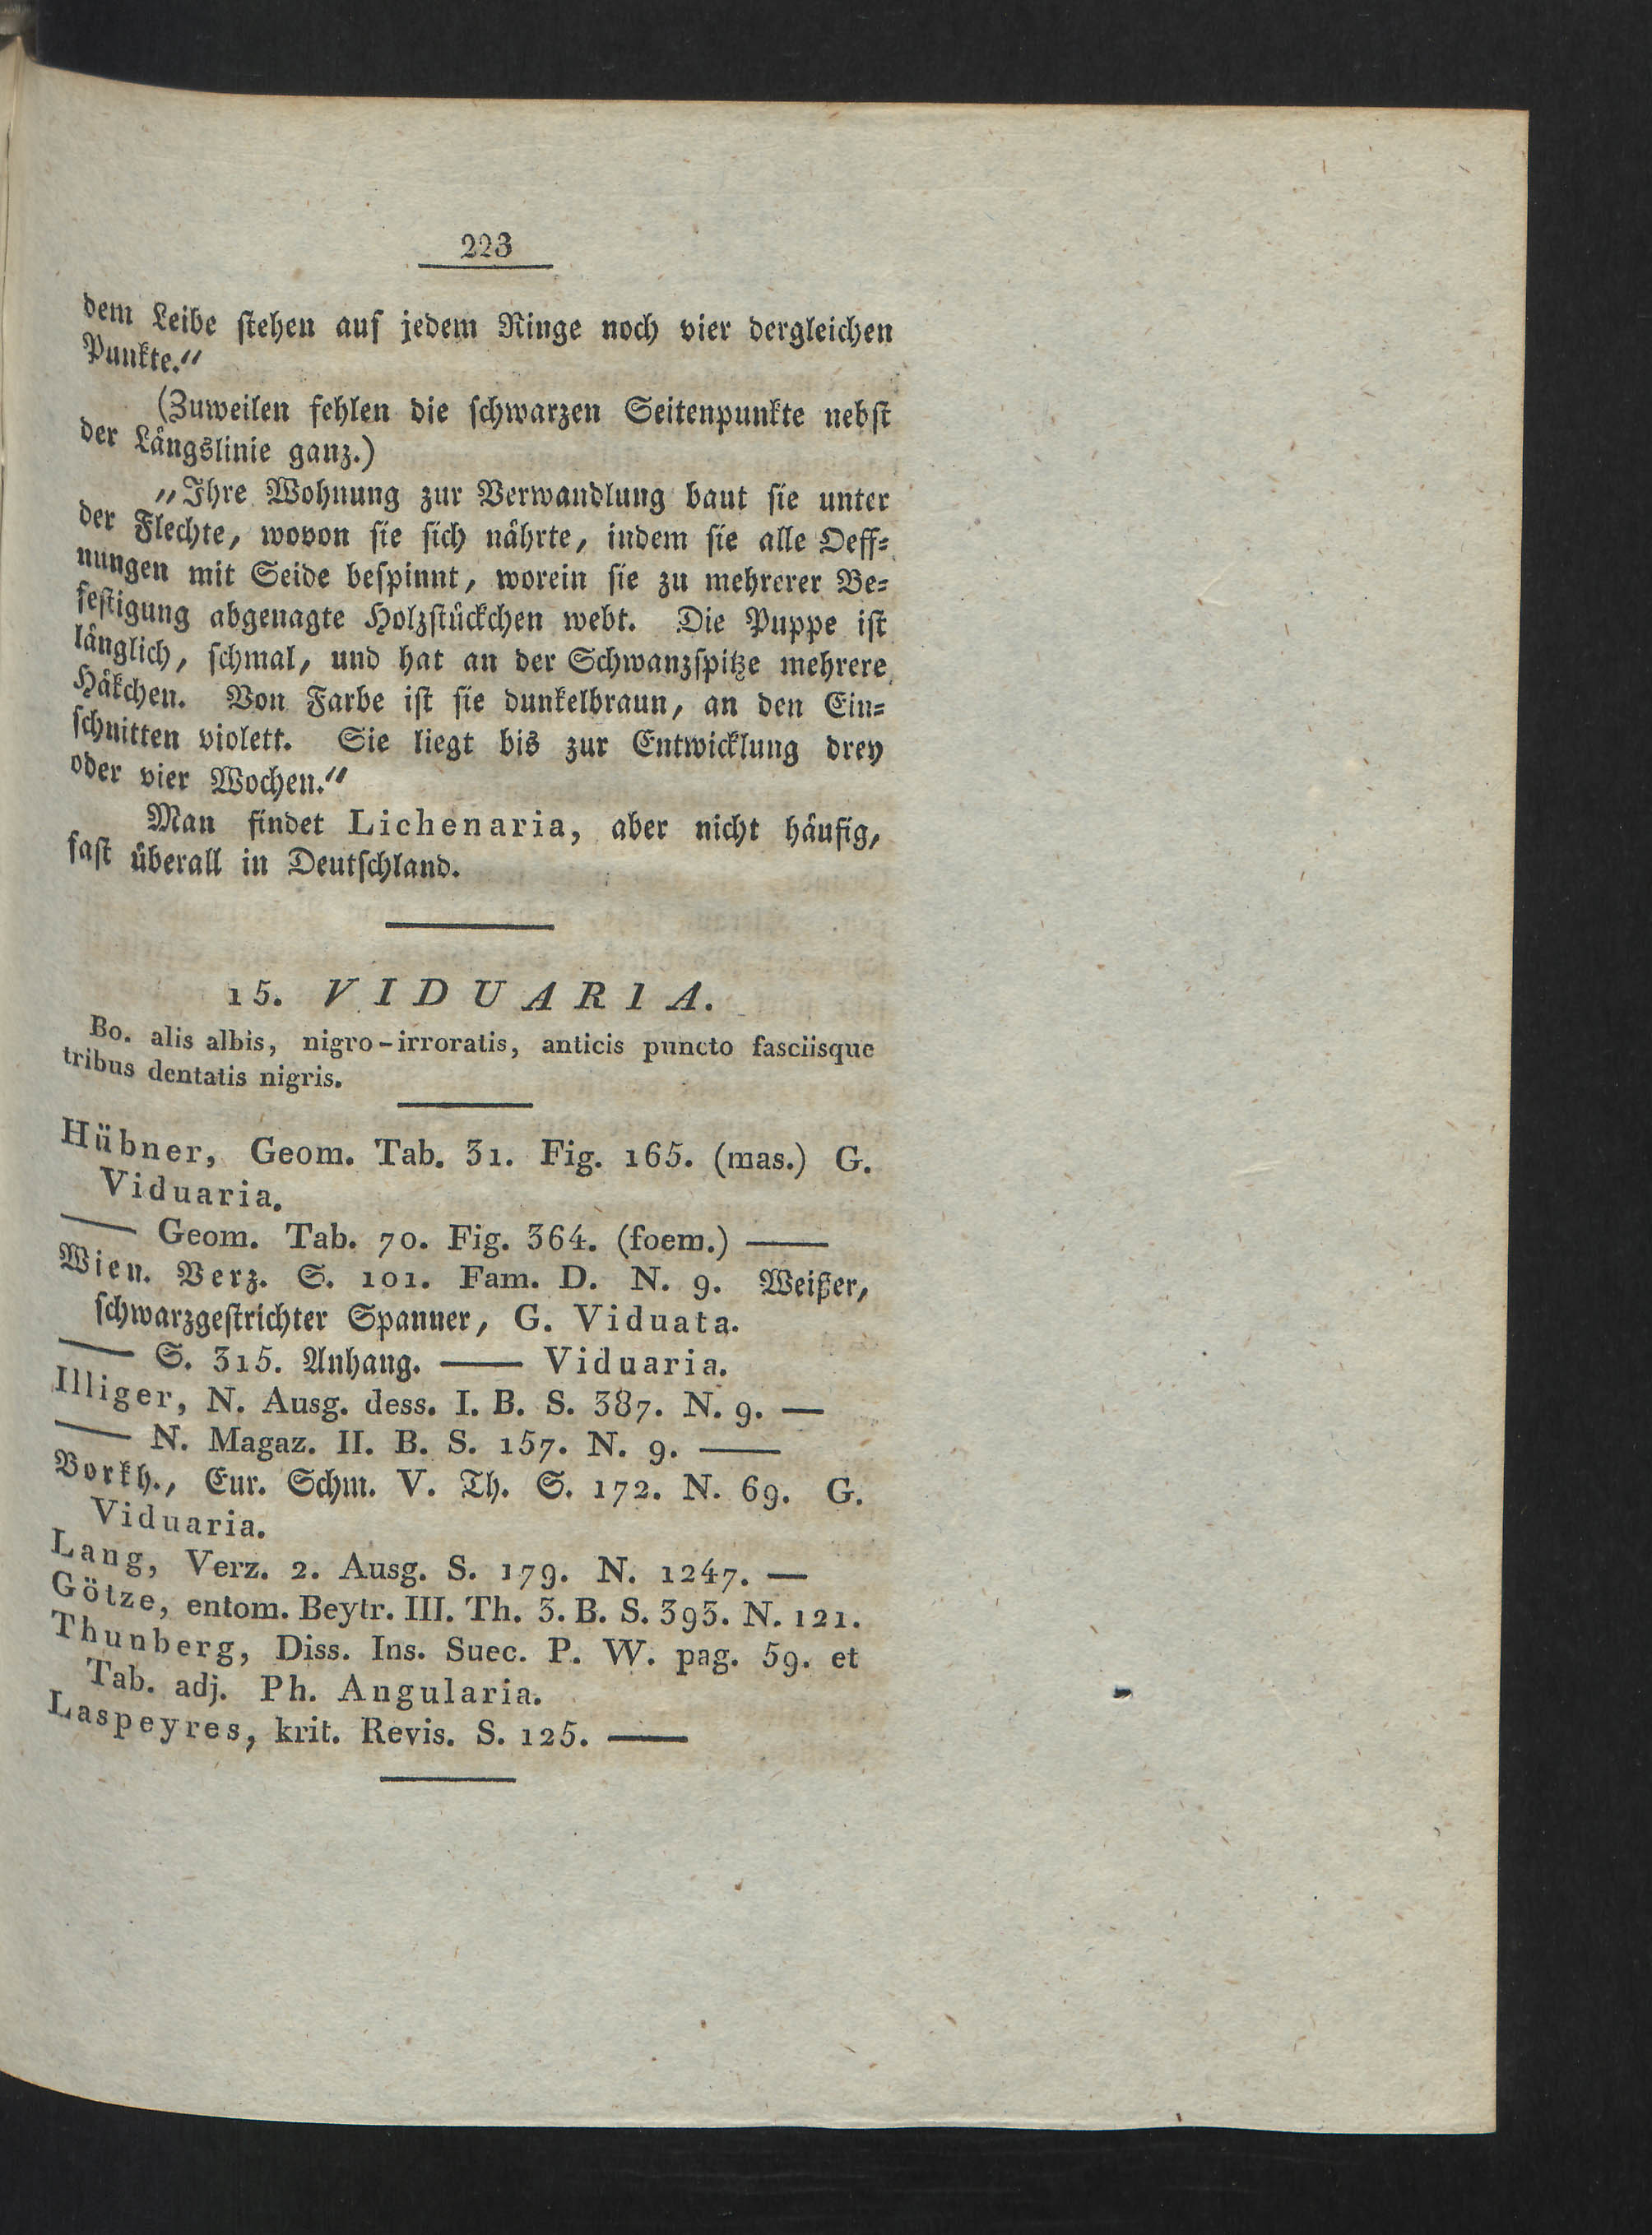 223
dem Leibe stehen auf jedem Ringe noch vier dergleichen
Punkte.“
(Zuweilen fehlen die schwarzen Seitenpunkte nebst
der Längslinie ganz.)
„Ihre Wohnung zur Verwandlung baut sie unter
der Flechte, wovon sie sich nährte, indem sie alle Oeff-
nungen mit Seide bespinnt, worein sie zu mehrerer Be-
festigung abgenagte Holzstückchen webt. Die Puppe ist
länglich, schmal, und hat an der Schwanzspitze mehrere
Häkchen. Von Farbe ist sie dunkelbraun, an den Ein-
schnitten violett. Sie liegt bis zur Entwicklung drey
oder vier Wochen.“
Man findet Lichenaria, aber nicht häufig,
fast überall in Deutschland.
15. VIDUARIA.
Bo. alis albis, nigro-irroratis, anticis puncto fasciisque
tribus dentatis nigris.
Hübner, Geom. Tab. 31. Fig. 165. (mas.) G.
Viduaria.
— Geom. Tab. 70. Fig. 364. (foem.) —
Wien. Verz. S. 101. Fam. D. N. 9. Weißer,
schwarzgestrichter Spanner, G. Viduata.
— S. 315. Anhang. — Viduaria.
Illiger, N. Ausg. dess. I. B. S. 387. N. 9. —
— N. Magaz. II. B. S. 157. N. 9. —
Borkh., Eur. Schm. V. Th. S. 172. N. 69. G.
Viduaria.
Lang, Verz. 2. Ausg. S. 179. N. 1247. —
Götze, entom. Beytr. III. Th. 3. B. S. 393. N. 121.
Thunberg, Diss. Ins. Suec. P. W. pag. 59. et
Tab. adj. Ph. Angularia.
Laspeyres, krit. Revis. S. 125. —